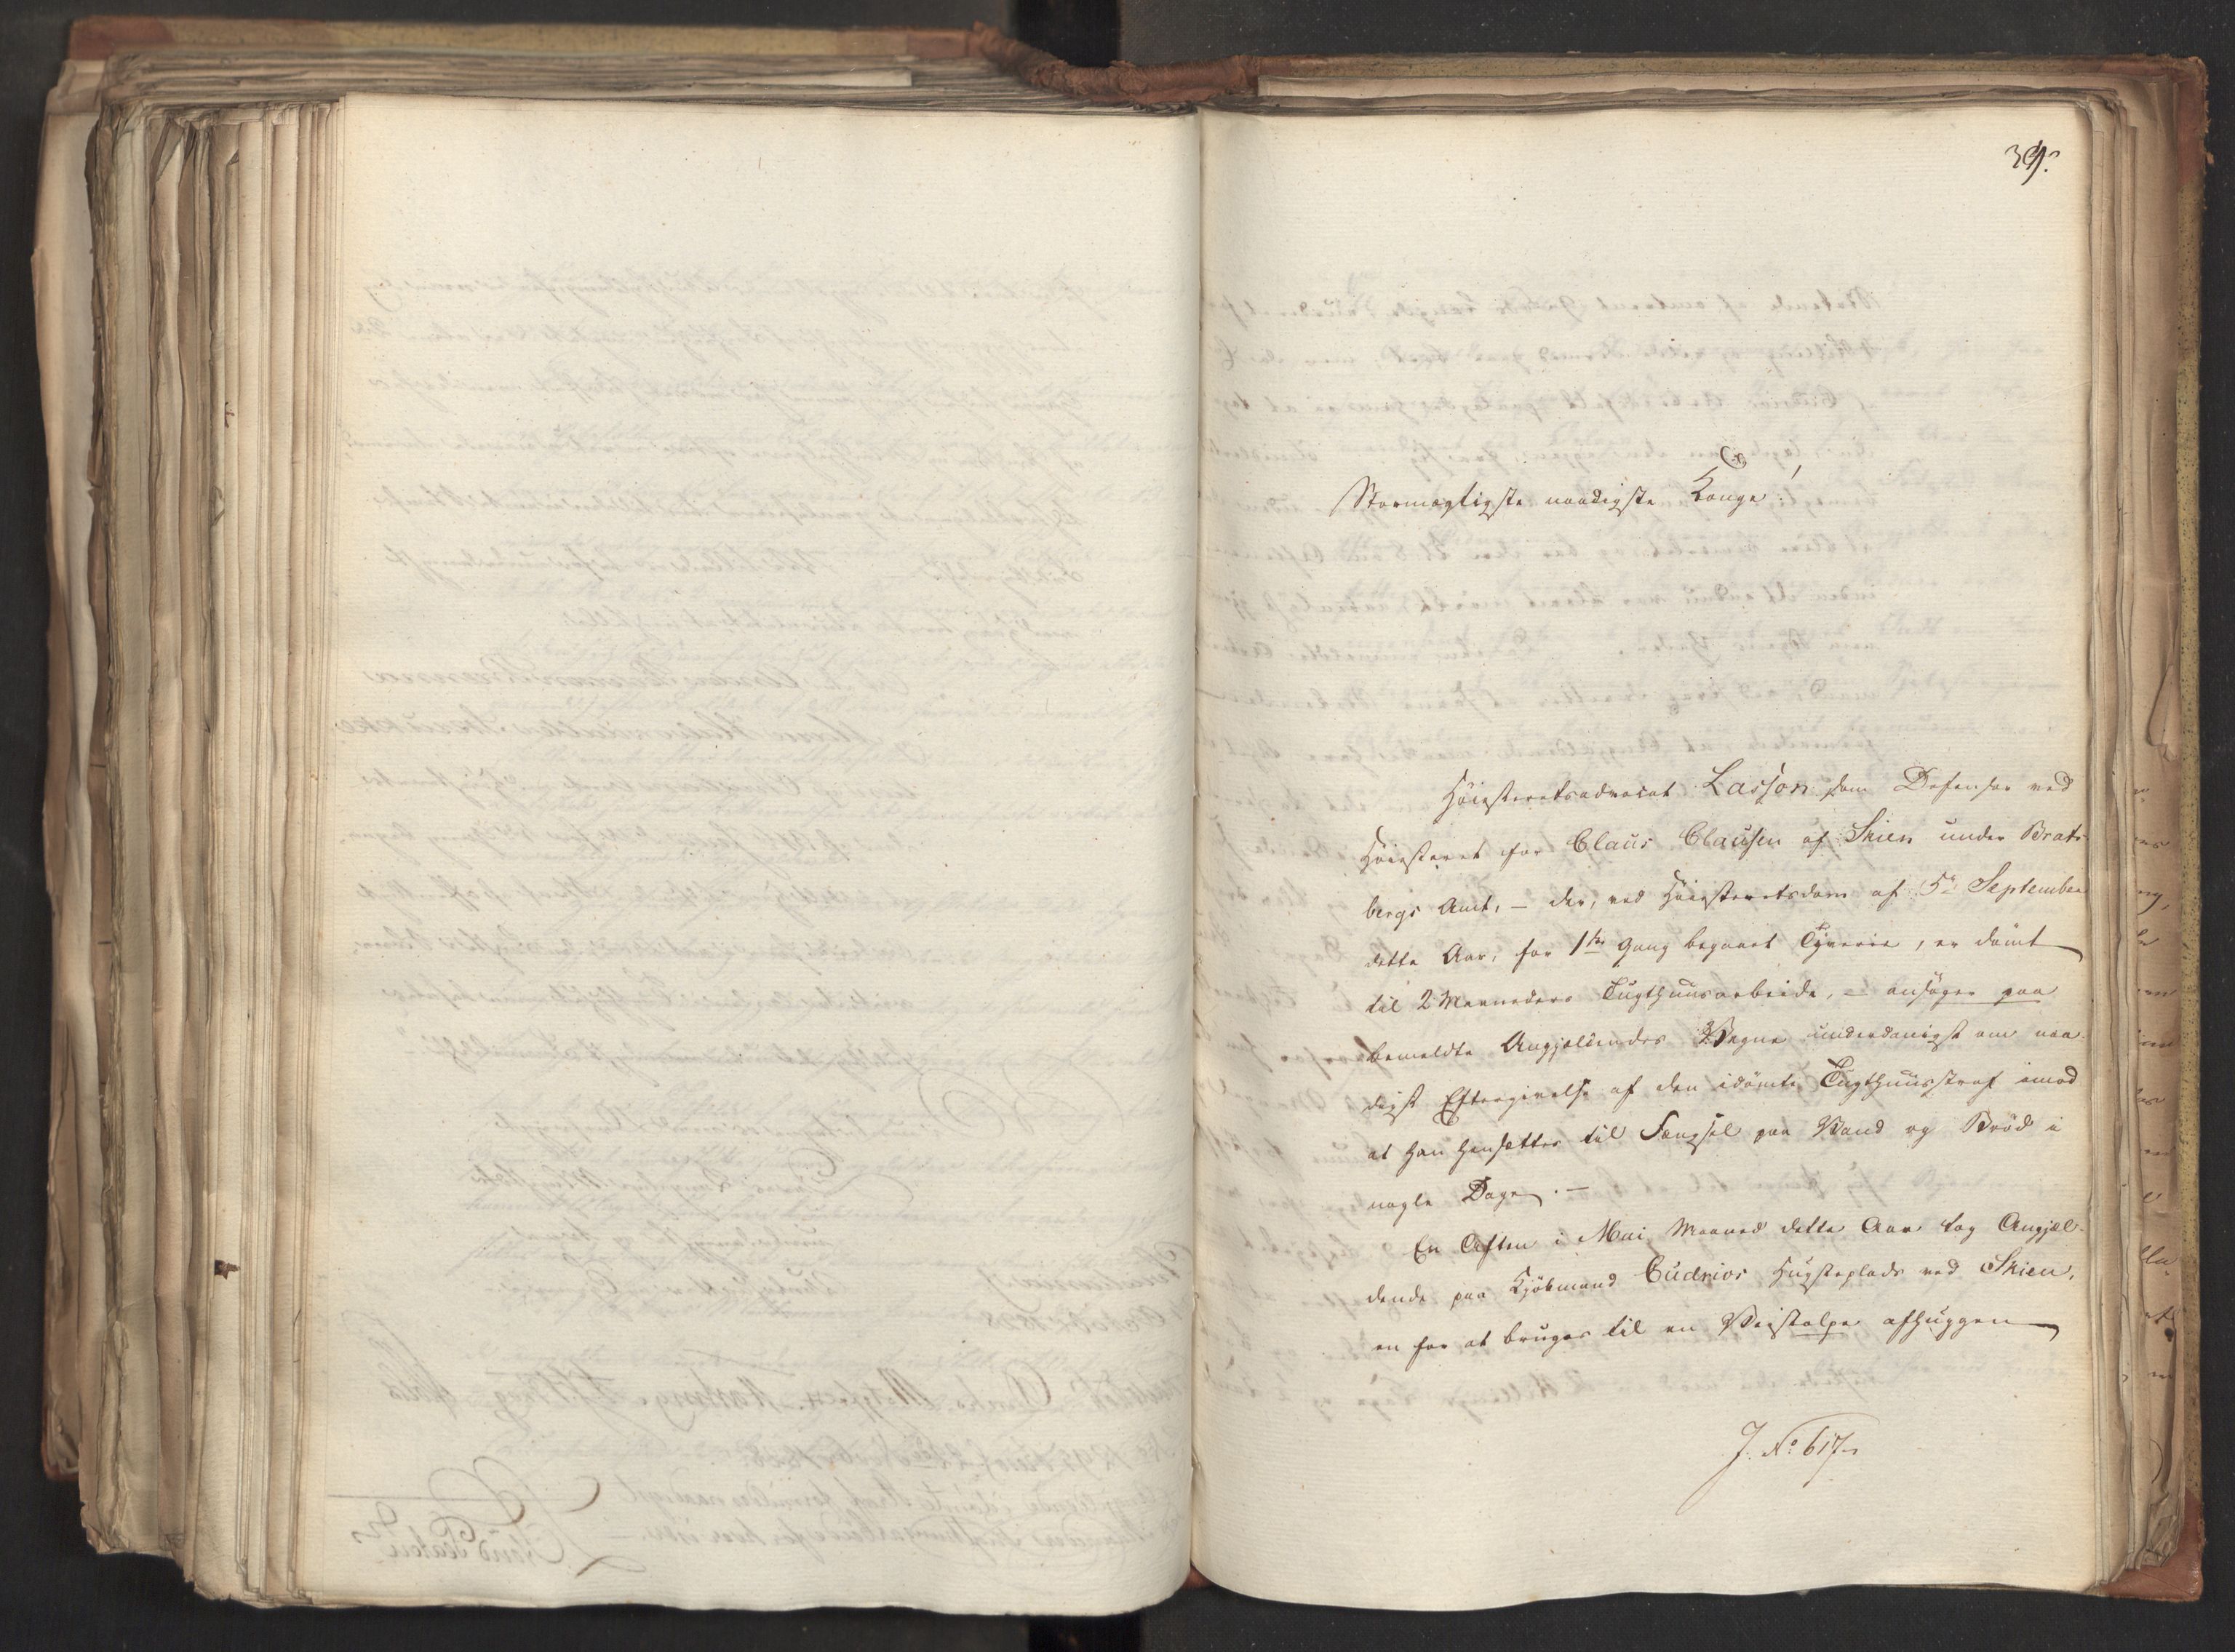 39.
Stormægtigste naadigste Konge!
Höiesteretsadvocat Lasson som Defensor ved
Höiesteret for Claus Clausen af Skien under Brats-
bergs Amt, – der, ved Höiesteretsdom af 5te September
dette Aar, for 1ste Gang begaaet Tyverie, er dömt
til 2 Maaneders Tugthuusarbeide, – ansöger paa
bemeldte Angjeldendes Vegne underdanigst om naa-
digst Eftergivelse af den idömte Tugthuusstraf imod
at han hensættes til Fængsel paa Vand og Bröd i
nogle Dage. –
En Aften i Mai Maaned dette Aar tog Angjæl-
dende paa Kjöbmand Cudrios Hugsteplads ved Skien,
en for at bruges til en Veistolpe afhuggen
J. No 617